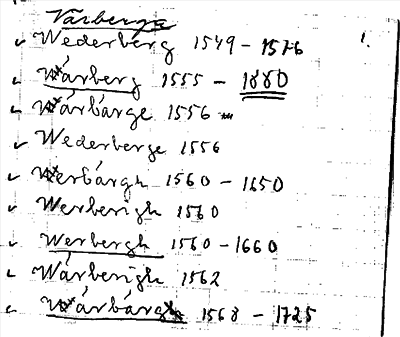 Varberga
Wederberg 1549 - 1576 1.
Wårberg 1555 - 1880
Wårbårge 1556
Wederberge 1556
Werbårgh 1560 - 1650
Werberigh 1560
Werbergh 1560 - 1660
Wårberigh 1562
Wårbårgh 1568 - 1725